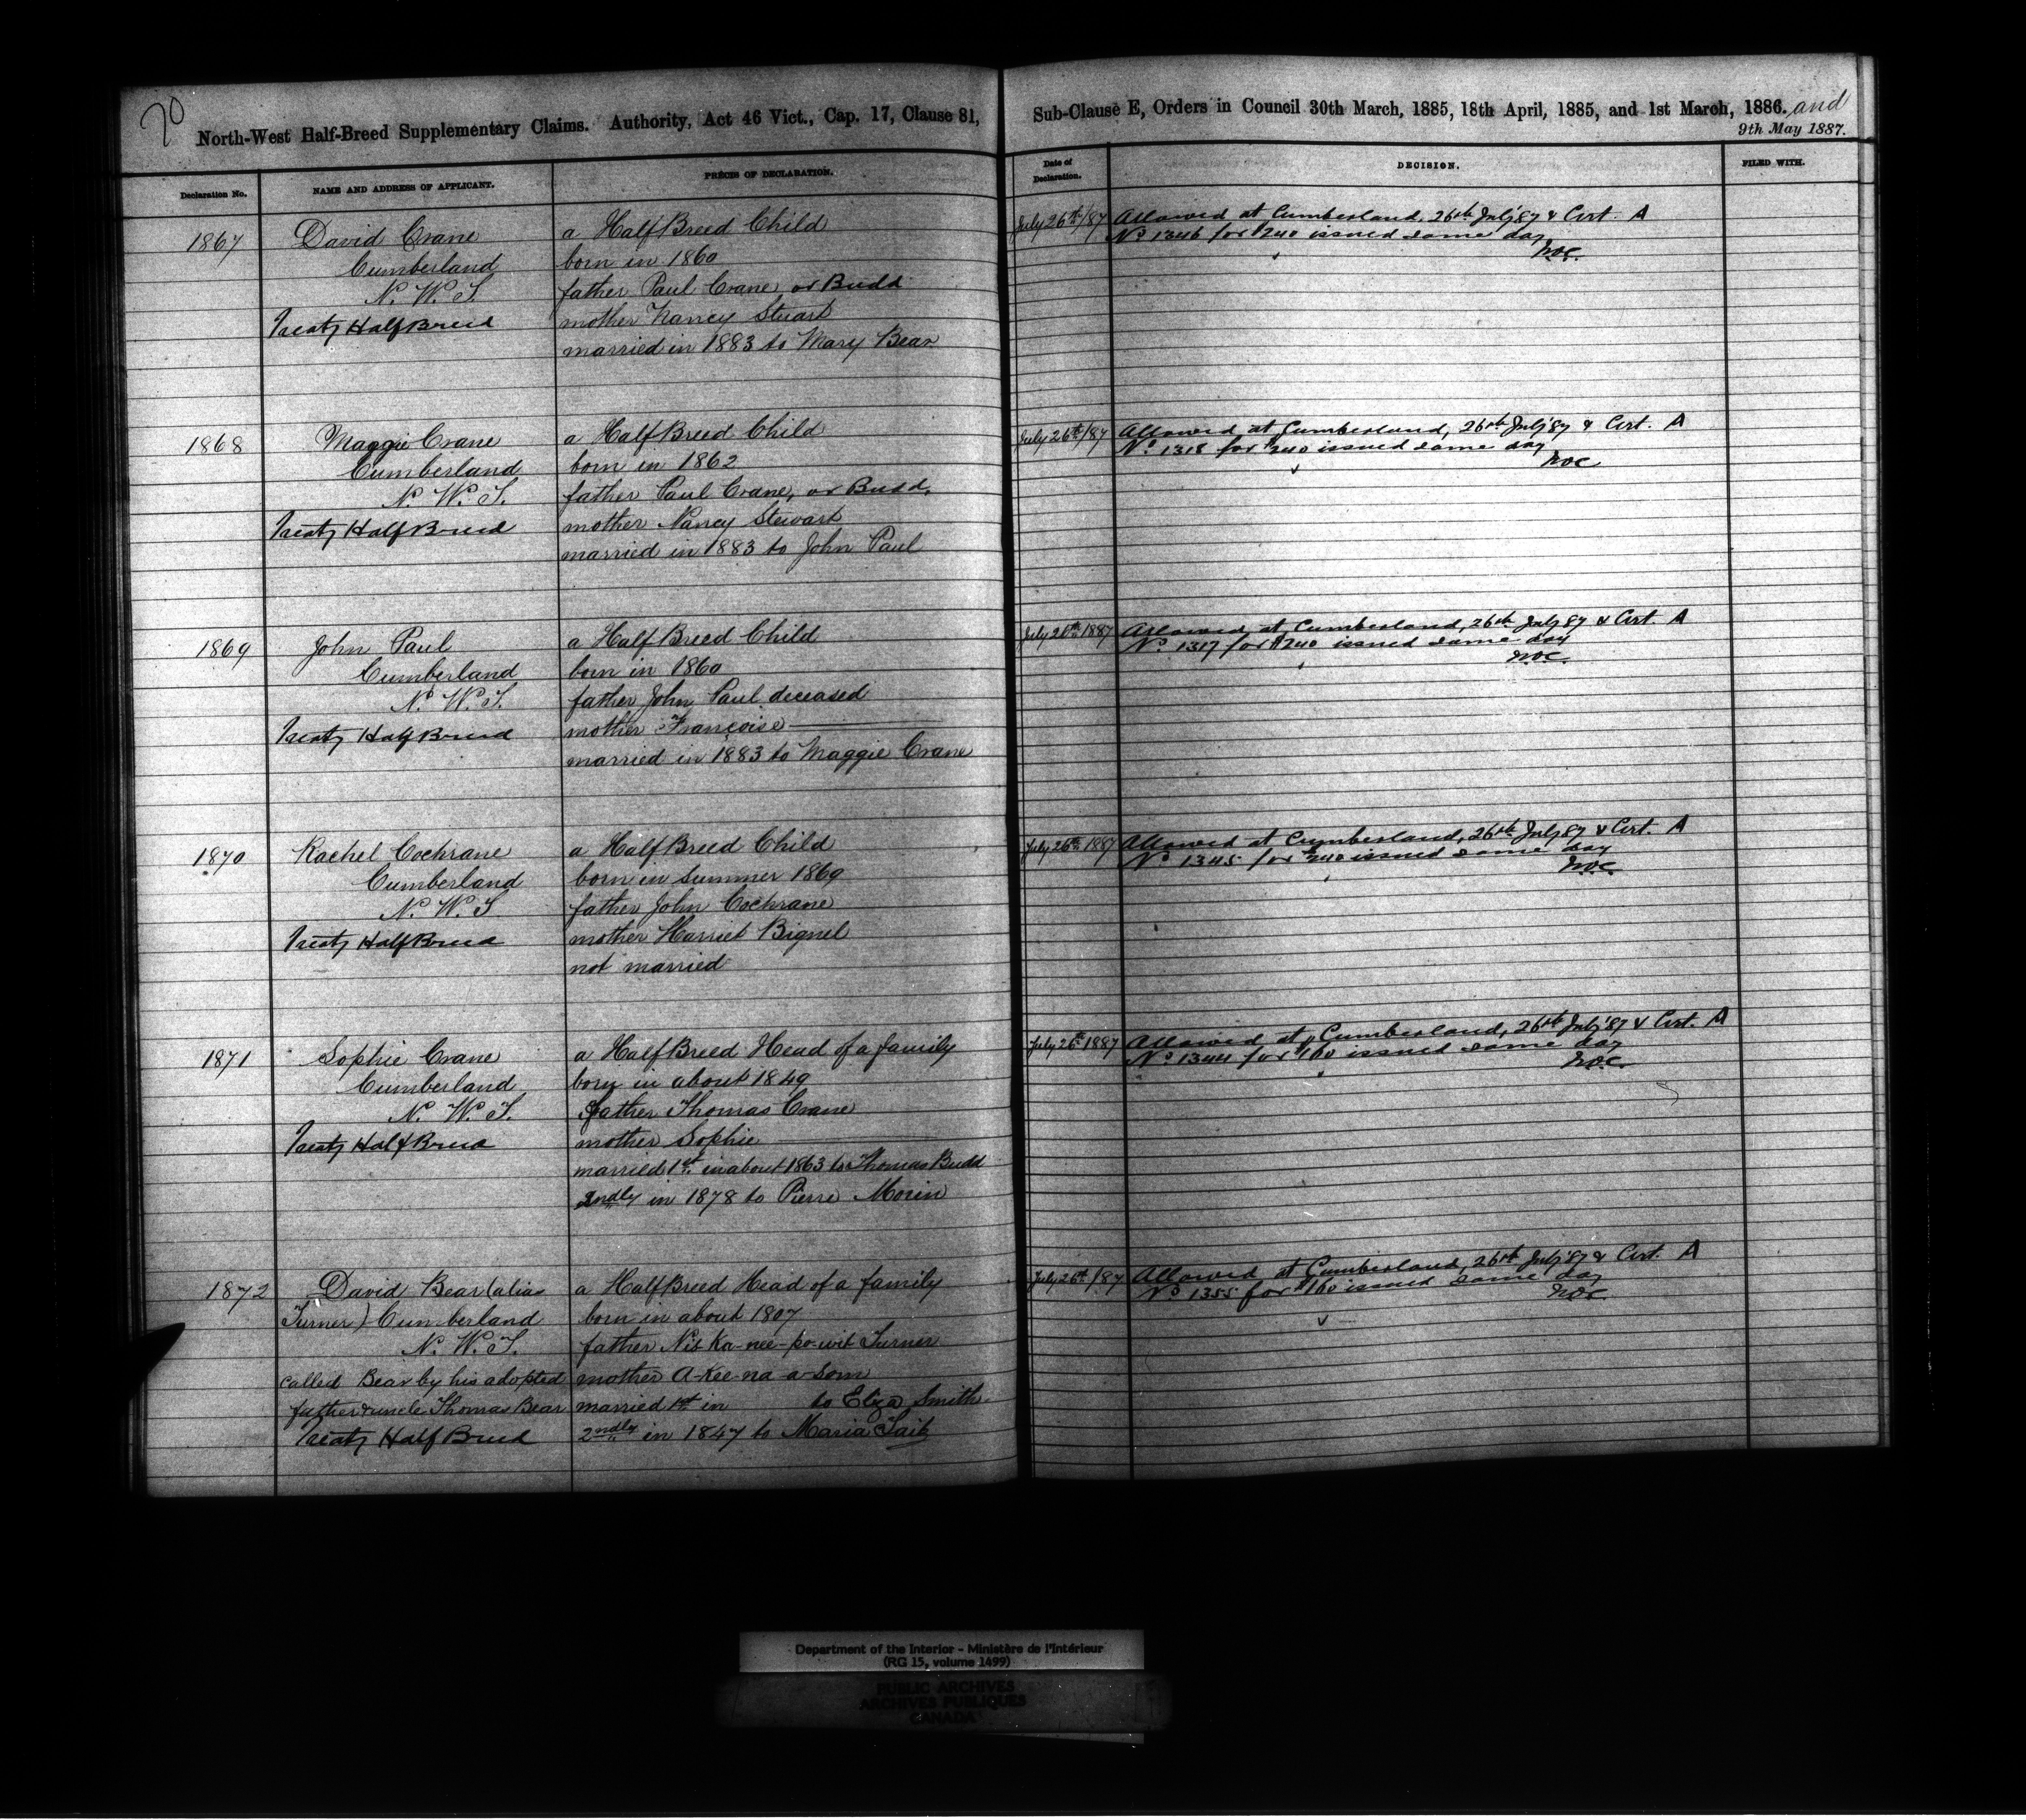 70
North-West Half-Breed Supplementary Claims. Authority, Act 46 Vict., Cap. 17, Clause 81,
Declaration No.
NAME AND ADDRESS OF APPLICANT.
PRÉCIS OF DECLARATION.
1867
David Crane
Cumberland
N. W. T.
Treaty HalfBreed
a HalfBreed Child
born in 1860
father Paul Crane or Budd
mother Nancy Stuart
married in 1883 to Mary Bear
1868
Maggie Crane
Cumberland
N. W. T.
Treaty HalfBreed
a HalfBreed Child
born in 1862
father Paul Crane, or Budd,
mother Nancy Stewart
married in 1883 to John Paul
1869
John Paul
Cumberland
N. W. T.
Treaty HalfBreed
a HalfBreed Child
born in 1860
father John Paul deceased
mother Françoise
married in 1883 to Maggie Crane
1870
Rachel Cochrane
Cumberland
N. W. T
Treaty HalfBreed
a HalfBreed Child
born in summer 1869
father John Cochrane
mother Harriet Bignel
not married
1871
Sophie Crane
Cumberland
N. W. T.
Treaty HalfBreed
a HalfBreed Head of a family
born in about 1849
father Thomas Crane
mother Sophie
married 1st in about 1863 to Thomas Budd
2ndly in 1878 to Pierre Morin
1872
David Bear (alias
Turner) Cumberland
N. W. T.
called Bear by his adopted
father & uncle Thomas Bear
Treaty HalfBreed
a HalfBreed Head of a family
born in about 1807
father Nis-Ka-nee-po-wit Turner
mother A-Kee-na-a-som
married 1st in to Eliza Smith
2ndly in 1847 to Maria Tait
Sub-Clause E, Orders in Council 30th March, 1885, 18th April, 1885, and 1st March, 1886. and
9th May 1887.
Date of
Declaration.
DECISION.
FILED WITH.
July 26th/87
Allowed at Cumberland, 26th July '87 & Cert. A
No 1346 for $240 issued same day
July 26th/87
Allowed at Cumberland, 26th July '87 & Cert. A
No 1318 for $240 issued same day
July 26th 1887
Allowed at Cumberland, 26th July 87 & Cert. A
No 1317 for $240 issued same day
July 26th 1887
Allowed at Cumberland, 26th July 87 & Cert. A
No 1345 for $240 issued same day
July 26th 1887
Allowed at Cumberland, 26th July '87 & Cert. A
No 1344 for $160 issued same day
July 26th/87
Allowed at Cumberland, 26th July '87 & Cert. A
No 1355 for $160 issued same day
Department of the Interior - Ministère de l'Intérieur
(RG 15, volume 1499)
PUBLIC ARCHIVES
ARCHIVES PUBLIQUES
CANADA